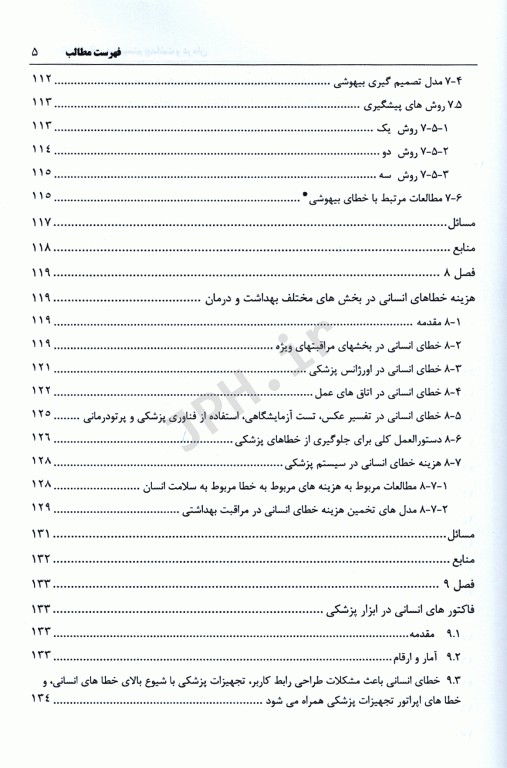 فهرست مطالب ۵
۷-۴ مدل تصمیم گیری بیهوشی ........ ۱۱۲
۷.۵ روش های پیشگیری ........ ۱۱۳
۷-۵-۱ روش یک ........ ۱۱۳
۷-۵-۲ روش دو ........ ۱۱٤
۷-۵-۳ روش سه ........ ۱۱۵
۷-۶ مطالعات مرتبط با خطای بیهوشی ........ ۱۱۵
مسائل ........ ۱۱۷
منابع ........ ۱۱۸
فصل ۸ ........ ۱۱۹
هزینه خطاهای انسانی در بخش های مختلف بهداشت و درمان ........ ۱۱۹
۸-۱ مقدمه ........ ۱۱۹
۸-۲ خطای انسانی در بخشهای مراقبتهای ویژه ........ ۱۱۹
۸-۳ خطای انسانی در اورژانس پزشکی ........ ۱۲۱
۸-۴ خطای انسانی در اتاق های عمل ........ ۱۲۲
۸-۵ خطای انسانی در تفسیر عکس، تست آزمایشگاهی، استفاده از فناوری پزشکی و پرتودرمانی ........ ۱۲۵
۸-۶ دستورالعمل کلی برای جلوگیری از خطاهای پزشکی ........ ۱۲۶
۸-۷ هزینه خطای انسانی در سیستم پزشکی ........ ۱۲۸
۸-۷-۱ مطالعات مربوط به هزینه های مربوط به خطا مربوط به سلامت انسان ........ ۱۲۸
۸-۷-۲ مدل های تخمین هزینه خطای انسانی در مراقبت بهداشتی ........ ۱۲۹
مسائل ........ ۱۳۱
منابع ........ ۱۳۲
فصل ۹ ........ ۱۳۳
فاکتور های انسانی در ابزار پزشکی ........ ۱۳۳
۹.۱ مقدمه ........ ۱۳۳
۹.۲ آمار و ارقام ........ ۱۳۳
۹.۳ خطای انسانی باعث مشکلات طراحی رابط کاربر، تجهیزات پزشکی با شیوع بالای خطا های انسانی، و
خطا های اپراتور تجهیزات پزشکی همراه می شود ........ ۱۳٤
JPH.ir